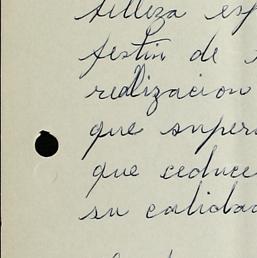 belleza esp
festin de
realizacion
que super
que seduce
su calidad